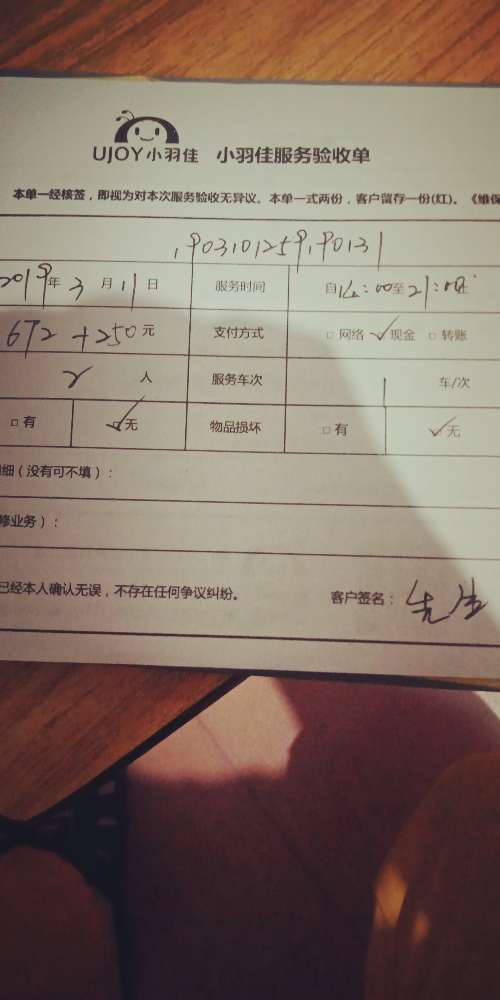 UJOY小羽佳 小羽佳服务验收单
本单一经核签，即视为对本次服务验收无异议、本单一式两份，客户留存一份(红)。《维保
190310125919013
2019年 3 月 11 日 服务时间 自 :00至21:00止
672+250元 支付方式 □网络 ✓现金 □转账
2 人 服务车次 1 车/次
□有 ✓无 物品损坏 □有 ✓无
细（没有可不填）：
修业务）：
已经本人确认无误，不存在任何争议纠纷。 客户签名： 先生